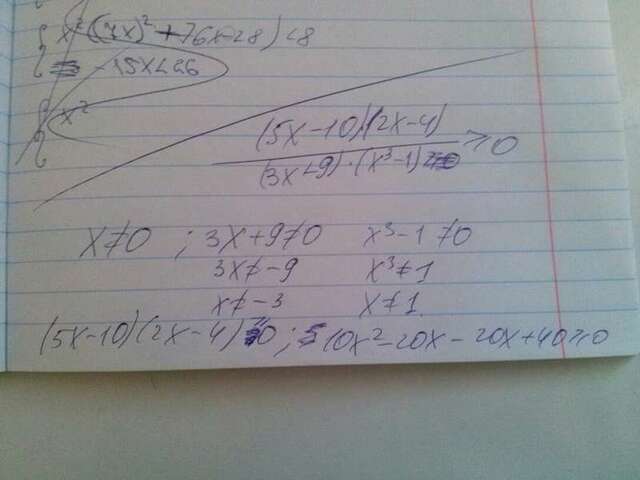 { x² (7x)² + 76x-28) < 8
{ -15x<26
{ x²
(5x-10)(2x-4)
(3x+9)·(x³-1) ≥0
x≠0 ; 3x+9≠0 x³-1≠0
3x≠-9 x³≠1
x≠-3 x≠1
(5x-10)(2x-4) ≥0 ; 10x²-20x-20x+40≥0